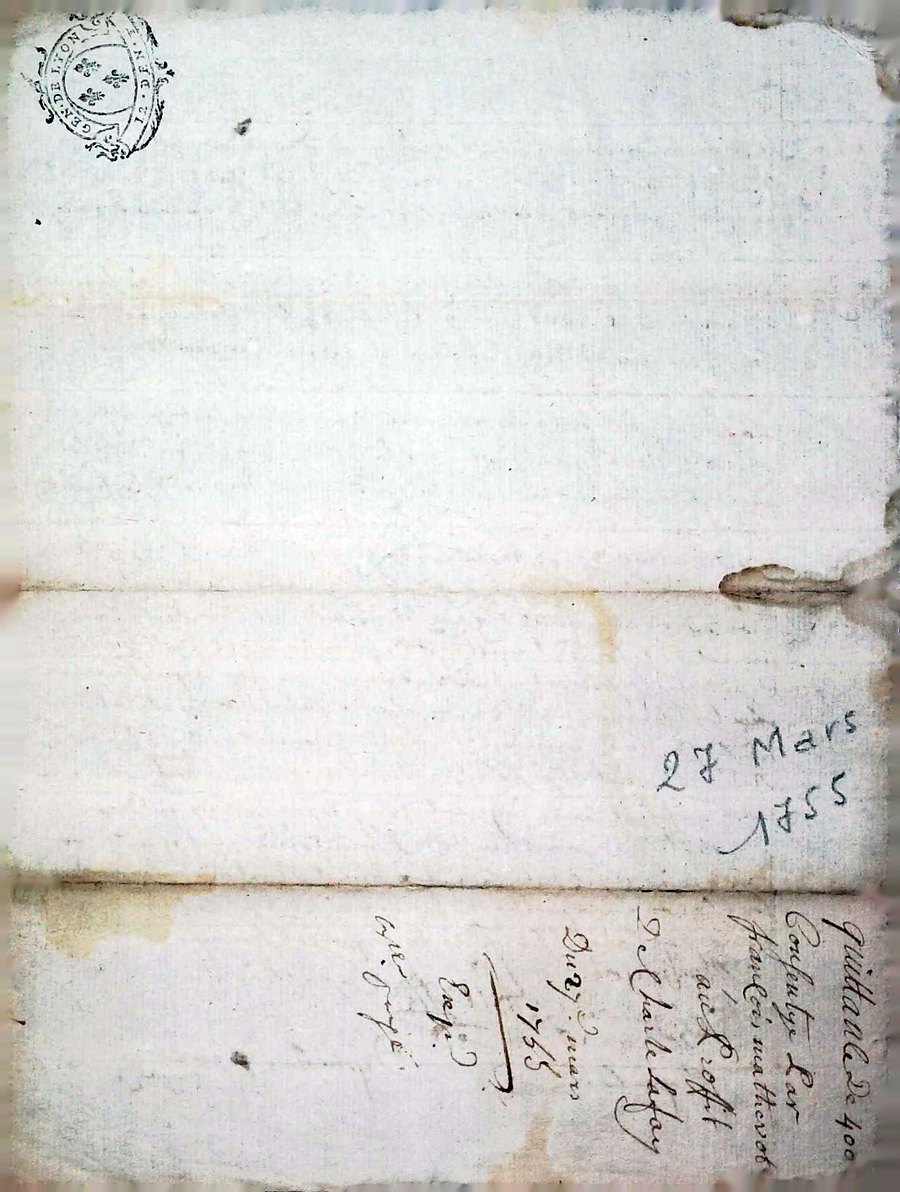 GEN·DE LYON
27 Mars
1755
quittance De 400
Consentye Par
francois mathevot
au Proffit
De Charle Lafay
Du 27e mars
1755
Exp.